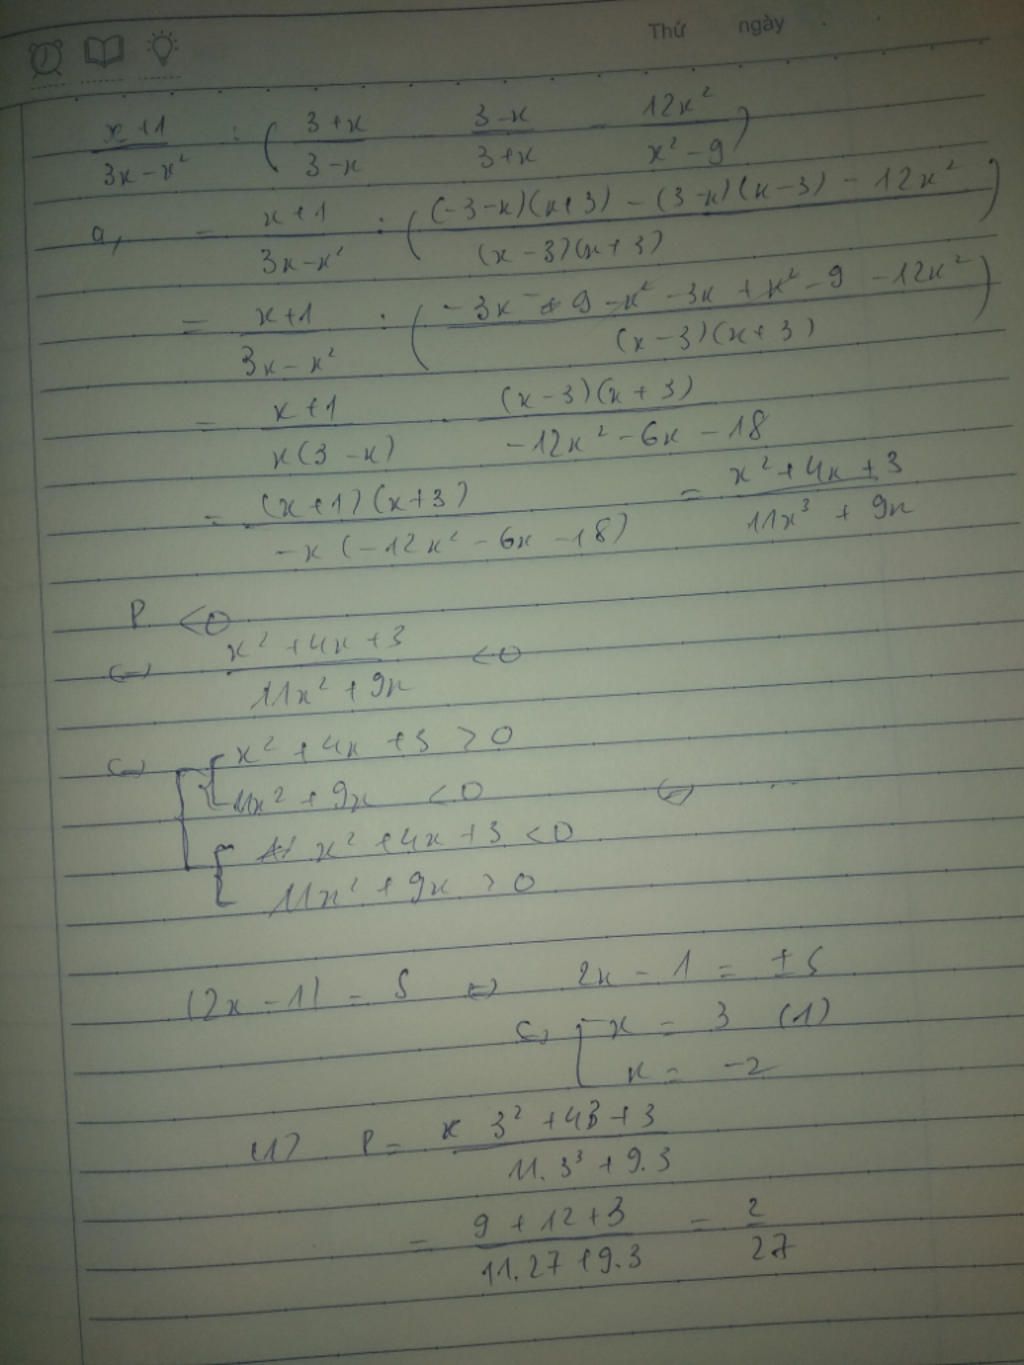 Thứ ngày
x+1 / 3x-x² : ( 3+x / 3-x - 3-x / 3+x - 12x² / x²-9 )
a, = x+1 / 3x-x² : ( (-3-x)(x+3) - (3-x)(x-3) - 12x² / (x-3)(x+3) )
= x+1 / 3x-x² : ( -3x - 9 - x² - 3x + x² - 9 - 12x² / (x-3)(x+3) )
= x+1 / x(3-x) . (x-3)(x+3) / -12x² - 6x - 18
= (x+1)(x+3) / -x(-12x² - 6x - 18) = x²+4x+3 / 11x³ + 9x
P <0
<=> x²+4x+3 / 11x² + 9x <0
<=> [ { x² + 4x + 3 > 0
11x² + 9x < 0 <=>
{ x² + 4x + 3 < 0
11x² + 9x > 0
|2x - 1| = 5 <=> 2x - 1 = ±5
<=> [ x = 3 (1)
x = -2
(1) P = 3² + 43 + 3 / 11.3³ + 9.3
= 9 + 12 + 3 / 11.27 + 9.3 = 2 / 27